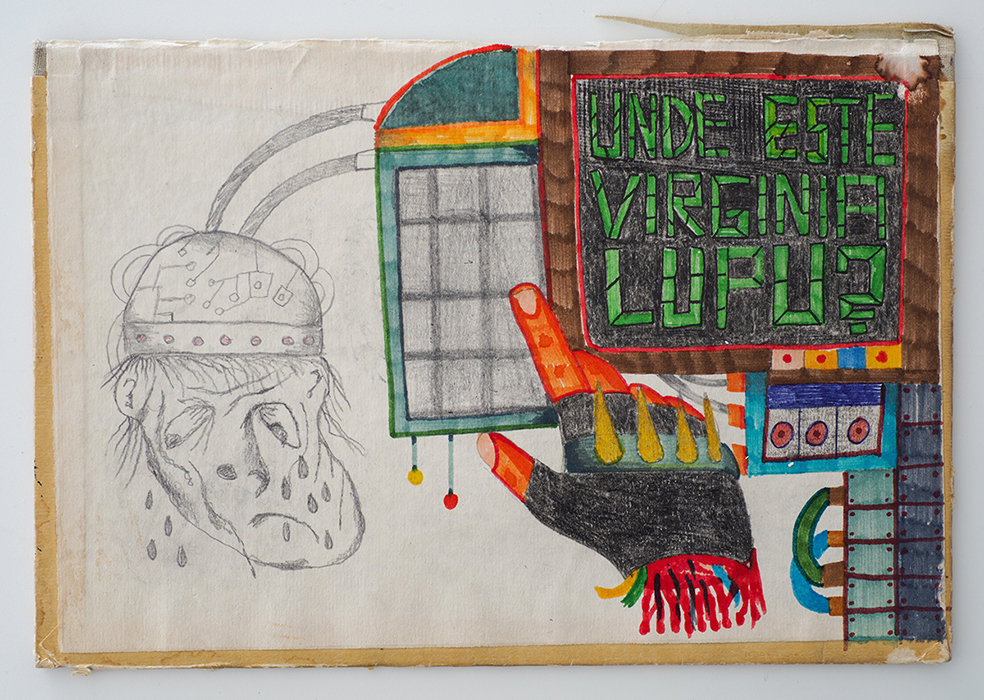 UNDE ESTE
VIRGINIA
LUPU?